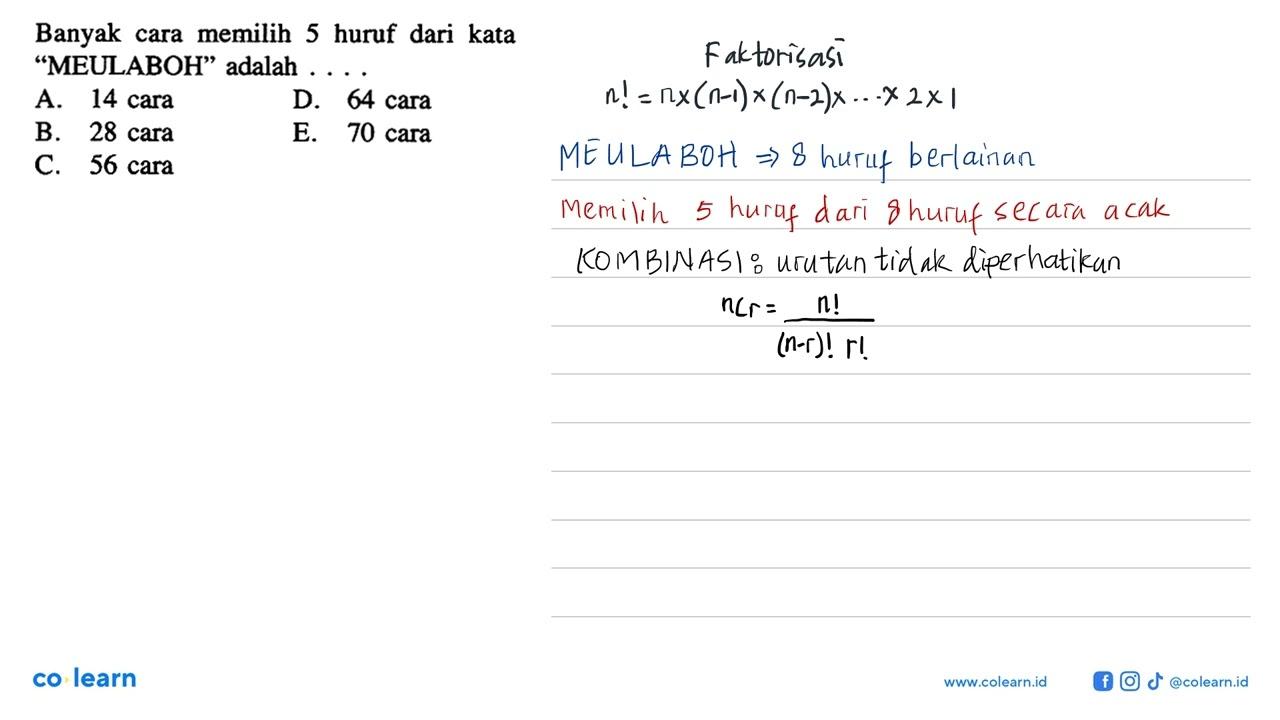 Banyak cara memilih 5 huruf dari kata
“MEULABOH” adalah . . . .
A. 14 cara D. 64 cara
B. 28 cara E. 70 cara
C. 56 cara
Faktorisasi
n! = n x (n-1) x (n-2) x ... x 2 x 1
MEULABOH ⇒ 8 huruf berlainan
Memilih 5 huruf dari 8 huruf secara acak
KOMBINASI : urutan tidak diperhatikan
nCr = n!
(n-r)! r!
co learn
www.colearn.id @colearn.id